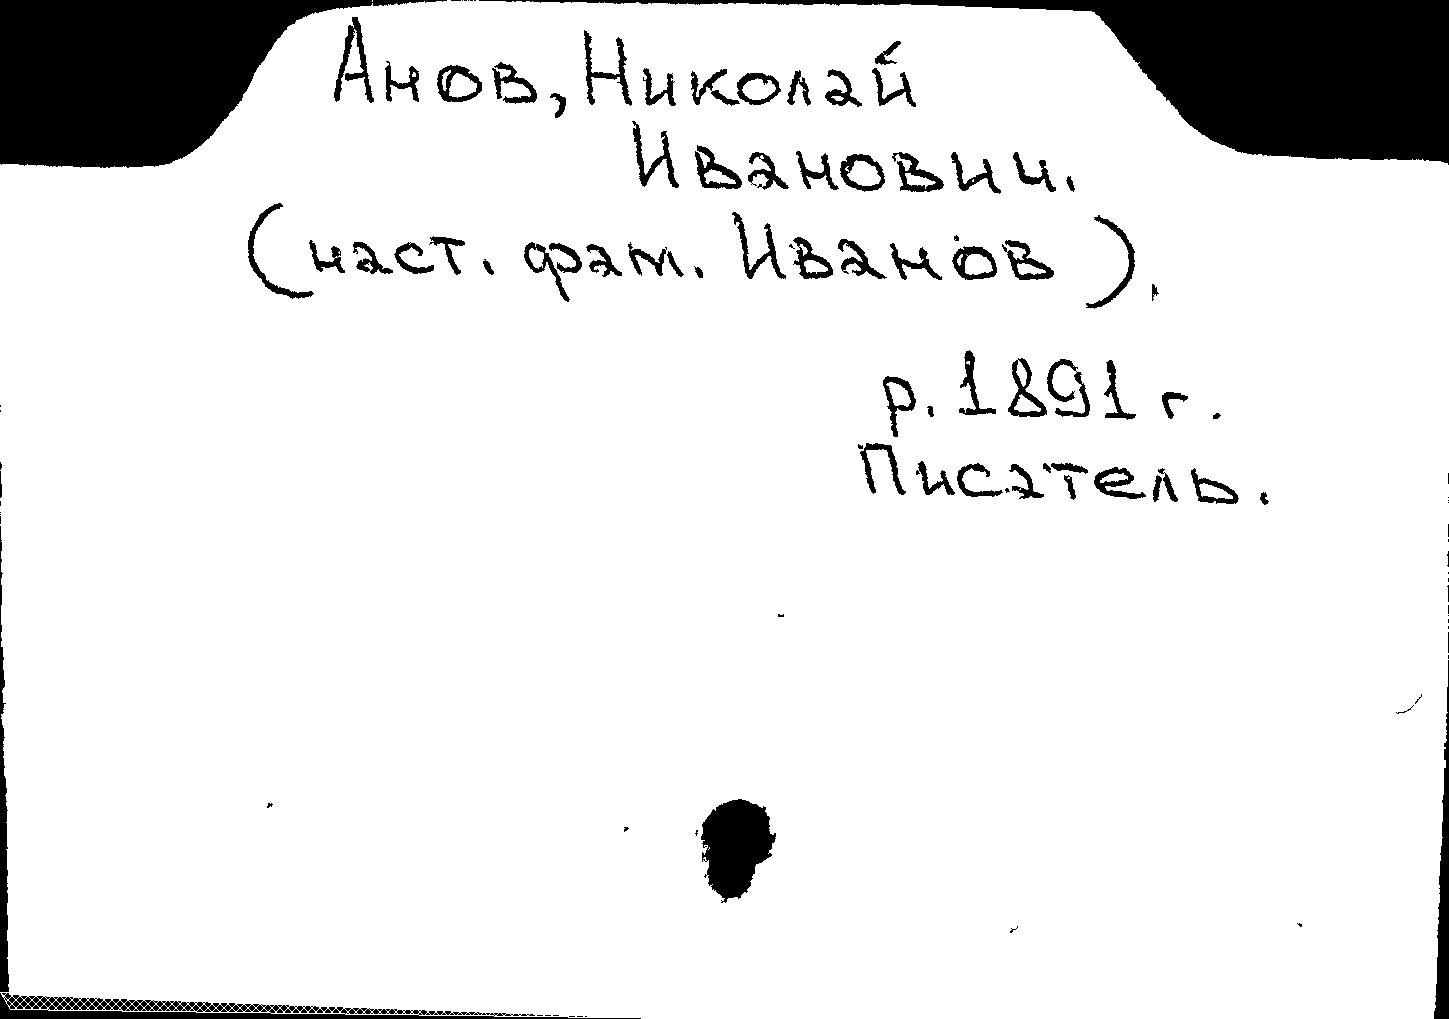 Анов, Николай
Иванович.
(наст. фам. Иванов).
р. 1891 г.
Писатель.